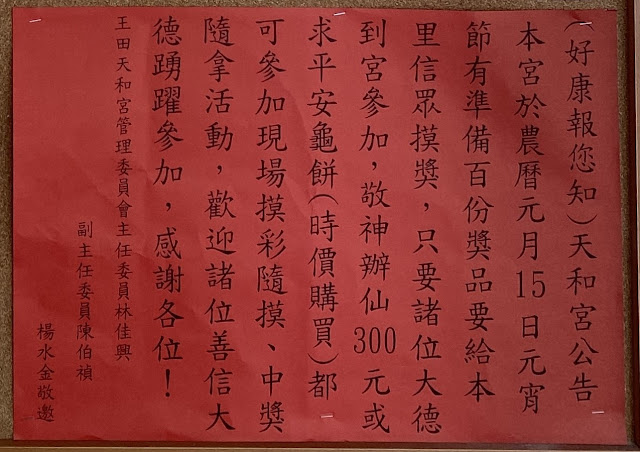 (好康報您知)天和宮公告
本宮於農曆元月15日元宵
節有準備百份獎品要給本
里信眾摸獎，只要諸位大德
到宮參加，敬神辦仙300元或
求平安龜餅(時價購買)都
可參加現場摸彩隨摸、中獎
隨拿活動，歡迎諸位善信大
德踴躍參加，感謝各位！
王田天和宮管理委員會主任委員林佳興
副主任委員陳伯禎
楊水金敬邀